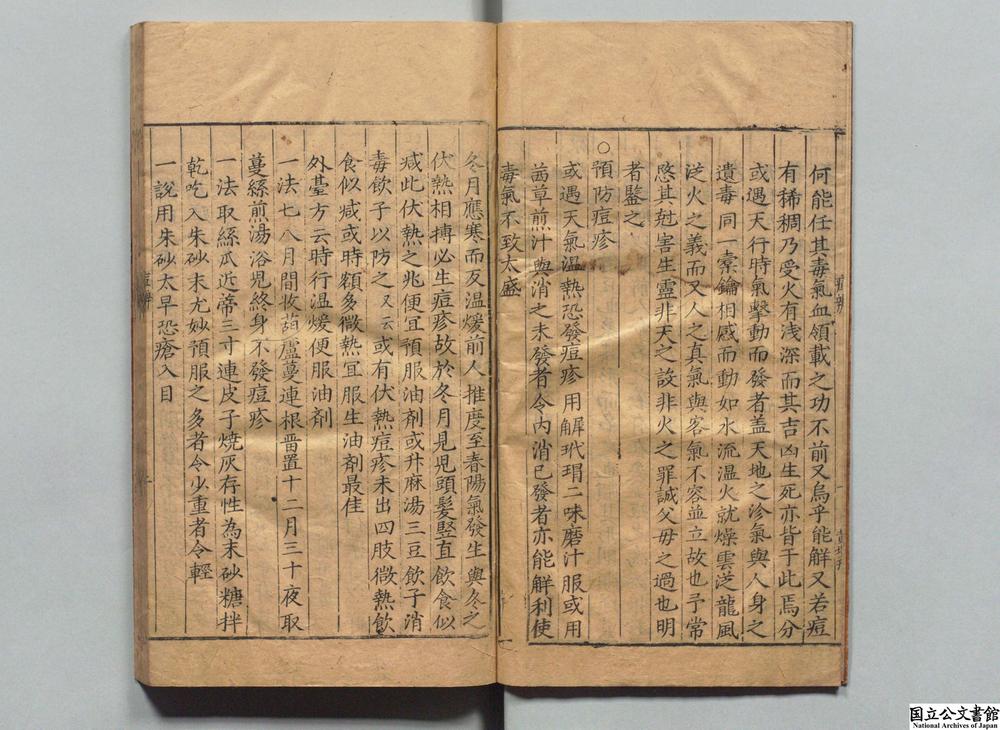 何能任其毒氣血領載之功不前又烏乎能解又若痘
有稀稠乃受火有淺深而其吉凶生死亦皆于此焉分
或遇天行時氣擊動而發者盖天地之沴氣與人身之
遺毒同一橐鑰相感而動如水流温火就燥雲從龍風
從火之義而又人之真氣與客氣不容並立故也予常
愍其尅害生靈非天之設非火之罪誠父毋之過也明
者鑒之
○預防痘疹
或遇天氣温熱恐發痘疹用犀玳瑁二味磨汁服或用
茜草煎汁與消之未發者令内消已發者亦能解利使
毒氣不致太盛
冬月應寒而反温煖前人推度至春陽氣發生與冬之
伏熱相搏必生痘疹故於冬月見兒頭髮竪直飲食似
减此伏熱之兆便冝預服油劑或升麻湯三豆飲子消
毒飲子以防之又云或有伏熱痘疹未出四肢微熱飲
食似减或時額多微熱冝服生油劑最佳
外臺方云時行温煖便服油劑
一法七八月間收葫蘆蔓連根畱置十二月三十夜取
蔓絲煎湯浴兒終身不發痘疹
一法取絲瓜近蒂三寸連皮子燒灰存性為末砂糖拌
乾吃入朱砂末尤妙預服之多者令少重者令輕
一說用朱砂太早恐瘡入目
国立公文書館
National Archives of Japan